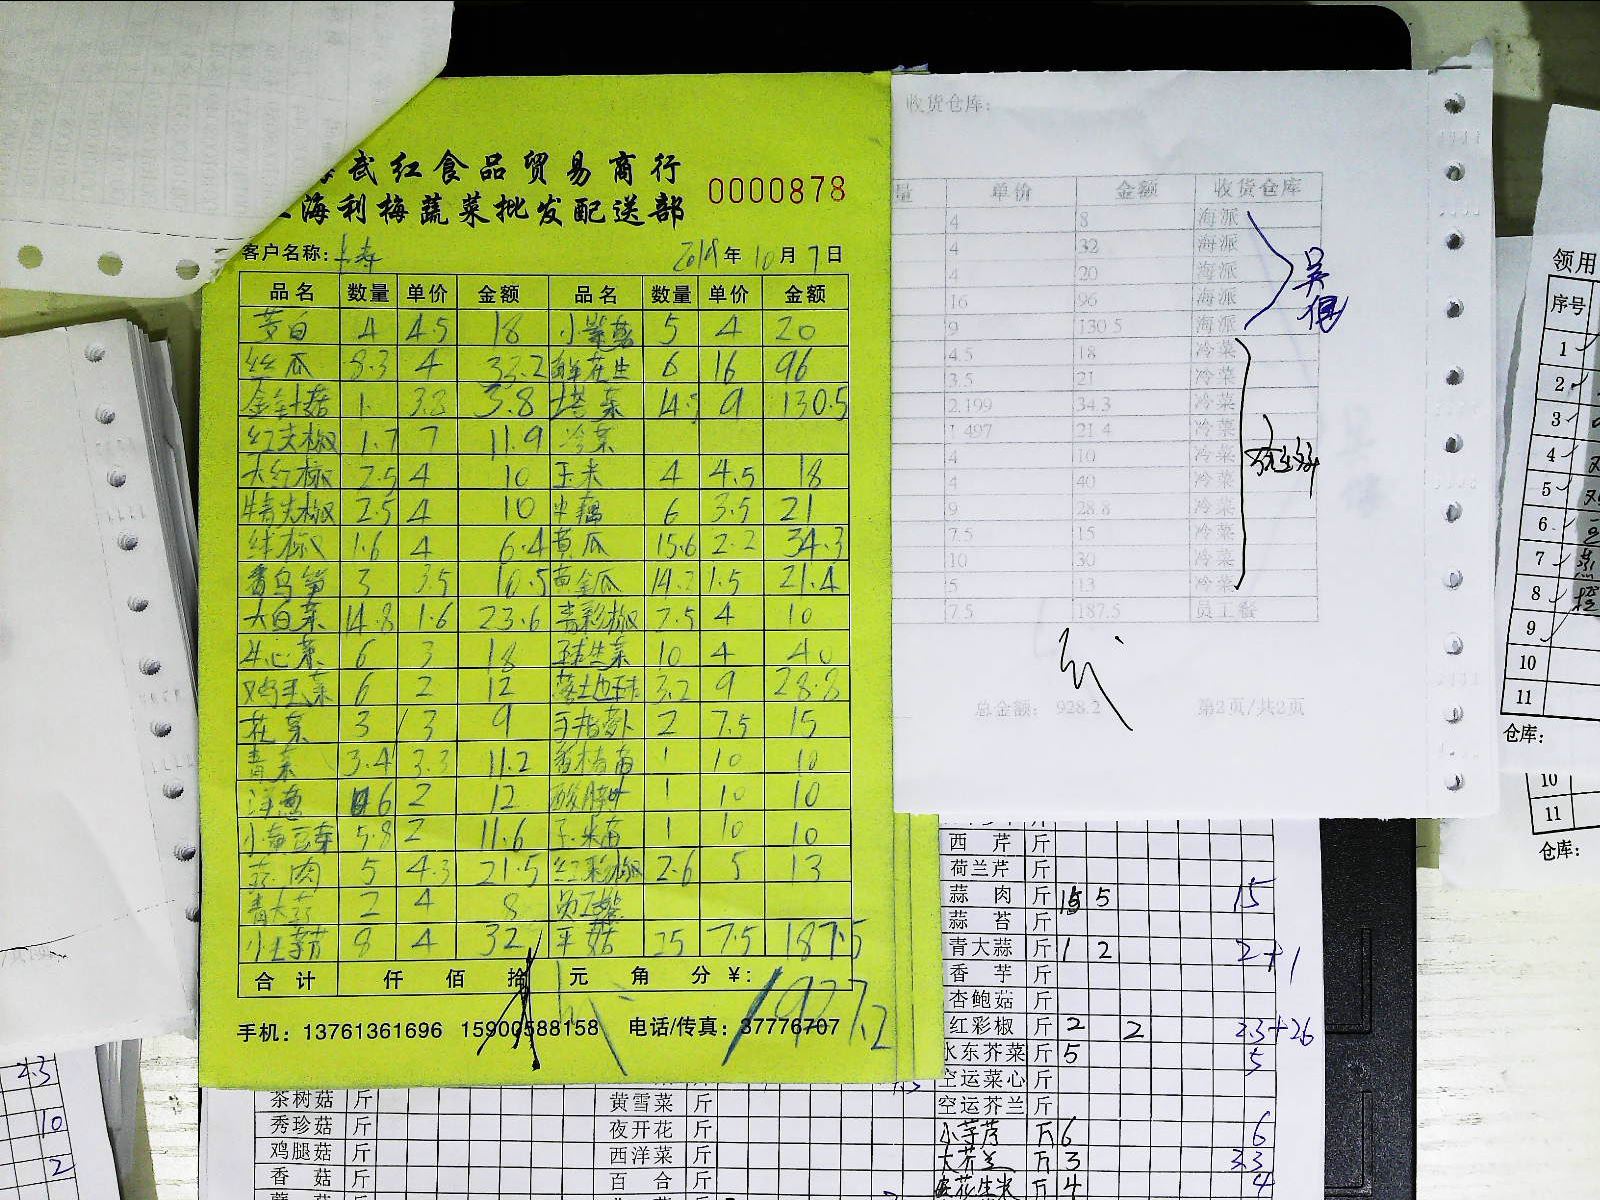 武红食品贸易商行
海利梅蔬菜批发配送部
0000878
客户名称:
2019年10月7日
品名 数量 单价 金额 品名 数量 单价 金额
茭白 4 4.5 18 5 4 20
丝瓜 8.3 4 33.2 鲜花生 6 16 96
金针菇 1 3.8 3.8 塔菜 14.5 9 130.5
红尖椒 1.7 7 11.9 冷菜
大红椒 2.5 4 10 玉米 4 4.5 18
青尖椒 2.5 4 10 中藕 6 3.5 21
球椒 1.6 4 6.4 黄瓜 15.6 2.2 34.3
3 3.5 10.5 黄金瓜 14.2 1.5 21.4
大白菜 14.8 1.6 23.6 青彩椒 2.5 4 10
牛心菜 6 3 18 球生菜 10 4 40
鸡毛菜 6 2 12 3.2 9 28.8
花菜 3 3 9 手指萝卜 2 7.5 15
青菜 3.4 3.3 11.2 1 10 10
洋葱 6 2 12 1 10 10
小黄豆芽 5.8 2 11.6 玉米苗 1 10 10
蒜肉 5 4.3 21.5 红彩椒 2.6 5 13
青大蒜 2 4 8 员工餐
小土芋艿 8 4 32 平菇 25 7.5 187.5
合计 仟 佰 拾 元 角 分 ¥:
1927.2
手机: 13761361696 15900588158 电话/传真: 37776707
收货仓库:
量 单价 金额 收货仓库
4 8 海派
4 32 海派
4 20 海派
16 96 海派
9 130.5 海派
4.5 18 冷菜
3.5 21 冷菜
2.199 34.3 冷菜
1.497 21.4 冷菜
4 10 冷菜
4 40 冷菜
9 28.8 冷菜
7.5 15 冷菜
10 30 冷菜
5 13 冷菜
7.5 187.5 员工餐
总金额: 928.2 第2页/共2页
西芹 斤
荷兰芹 斤
蒜肉 斤 15 5 15
蒜苔 斤
青大蒜 斤 1 2 2+1
香芋 斤
杏鲍菇 斤
红彩椒 斤 2 2 2.3+2.6
水东芥菜 斤 5 5
空运菜心 斤
空运芥兰 斤
小芋艿 斤 6 6
大芥兰 斤 3 3.3
4 4
茶树菇 斤 黄雪菜 斤
秀珍菇 斤 夜开花 斤
鸡腿菇 斤 西洋菜 斤
香菇 斤 百合 斤
2.3
10
2
领用
序号
1
2
3
4
5
6
7
8
9
10
11
仓库:
10
11
仓库: